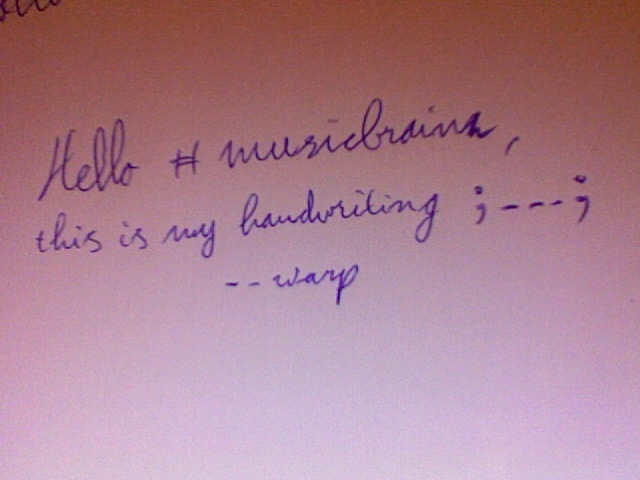 Hello #musicbrainz,
this is my handwriting ;---;
--warp